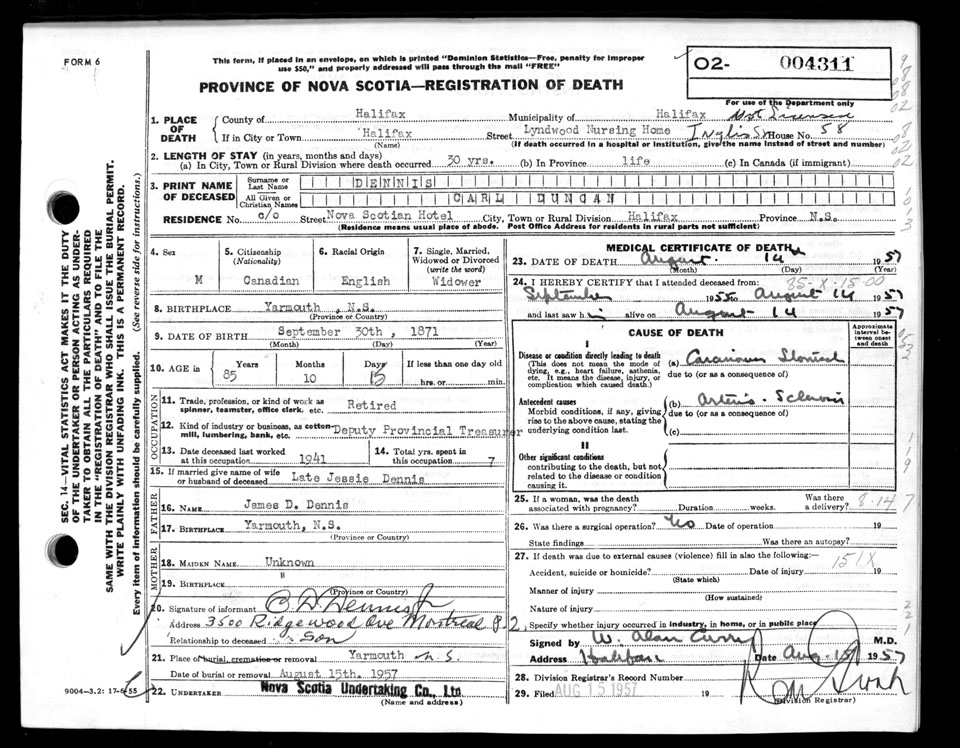 FORM 6
This form, if placed in an envelope, on which is printed "Dominion Statistics—Free, penalty for improper
use $50," and properly addressed will pass through the mail "FREE"
PROVINCE OF NOVA SCOTIA—REGISTRATION OF DEATH
02- 004311
For use of the Department only
1. PLACE OF DEATH
County of Halifax Municipality of Halifax Not Licensed
If in City or Town Halifax Street Lyndwood Nursing Home Inglis St House No. 58
(Name) (If death occurred in a hospital or institution, give the name instead of street and number)
2. LENGTH OF STAY (in years, months and days)
(a) In City, Town or Rural Division where death occurred 30 yrs. (b) In Province life (c) In Canada (if immigrant)
3. PRINT NAME OF DECEASED
Surname or Last Name DENNIS
All Given or Christian Names CARL DUNCAN
RESIDENCE No. c/o Street Nova Scotian Hotel City, Town or Rural Division Halifax Province N.S.
(Residence means usual place of abode. Post Office Address for residents in rural parts not sufficient)
4. Sex M
5. Citizenship (Nationality) Canadian
6. Racial Origin English
7. Single, Married, Widowed or Divorced (write the word) Widower
8. BIRTHPLACE Yarmouth, N.S.
(Province or Country)
9. DATE OF BIRTH September 30th, 1871
(Month) (Day) (Year)
10. AGE in Years 85 Months 10 Days 15 If less than one day old
hrs. or min.
OCCUPATION
11. Trade, profession, or kind of work as
spinner, teamster, office clerk, etc. Retired
12. Kind of industry or business, as cotton-
mill, lumbering, bank, etc. Deputy Provincial Treasurer
13. Date deceased last worked
at this occupation 1941
14. Total yrs. spent in
this occupation 7
15. If married give name of wife
or husband of deceased Late Jessie Dennis
FATHER
16. NAME James D. Dennis
17. BIRTHPLACE Yarmouth, N.S.
(Province or Country)
MOTHER
18. MAIDEN NAME Unknown
19. BIRTHPLACE "
(Province or Country)
20. Signature of informant C. D. Dennis Jr
Address 3500 Ridgewood Ave Montreal P.2.
Relationship to deceased Son
21. Place of burial, cremation or removal Yarmouth N.S.
Date of burial or removal August 15th. 1957
22. UNDERTAKER Nova Scotia Undertaking Co., Ltd.
(Name and address)
9004—3.2: 17-6-55
MEDICAL CERTIFICATE OF DEATH
23. DATE OF DEATH August 14th 1957
(Month) (Day) (Year)
24. I HEREBY CERTIFY that I attended deceased from: 85-X-15-00
September 1955 to August 14 1957
and last saw him alive on August 14 1957
CAUSE OF DEATH
Approximate interval between onset and death
I
Disease or condition directly leading to death (a) Carcinoma Stomach
(This does not mean the mode of
dying, e.g., heart failure, asthenia,
etc. It means the disease, injury, or
complication which caused death.)
due to (or as a consequence of)
Antecedent causes (b) Arterio-Sclerosis
Morbid conditions, if any, giving
rise to the above cause, stating the
underlying condition last.
due to (or as a consequence of)
(c)
II
Other significant conditions
contributing to the death, but not
related to the disease or condition
causing it.
25. If a woman, was the death
associated with pregnancy? Duration weeks. Was there a delivery? 8-14-7
26. Was there a surgical operation? No Date of operation 19
State findings Was there an autopsy?
27. If death was due to external causes (violence) fill in also the following:—
151X
Accident, suicide or homicide? Date of injury 19
(State which)
Manner of injury
(How sustained)
Nature of injury
Specify whether injury occurred in industry, in home, or in public place
Signed by W. Alan Curry M.D.
Address Halifax Date Aug. 15 1957
28. Division Registrar's Record Number
29. Filed AUG 15 1957 19
(Division Registrar)
SEC. 14—VITAL STATISTICS ACT MAKES IT THE DUTY
OF THE UNDERTAKER OR PERSON ACTING AS UNDER-
TAKER TO OBTAIN ALL THE PARTICULARS REQUIRED
IN THE "REGISTRATION OF DEATH" AND TO FILE THE
SAME WITH THE DIVISION REGISTRAR WHO SHALL ISSUE THE BURIAL PERMIT.
WRITE PLAINLY WITH UNFADING INK. THIS IS A PERMANENT RECORD.
Every item of information should be carefully supplied. (See reverse side for instructions.)